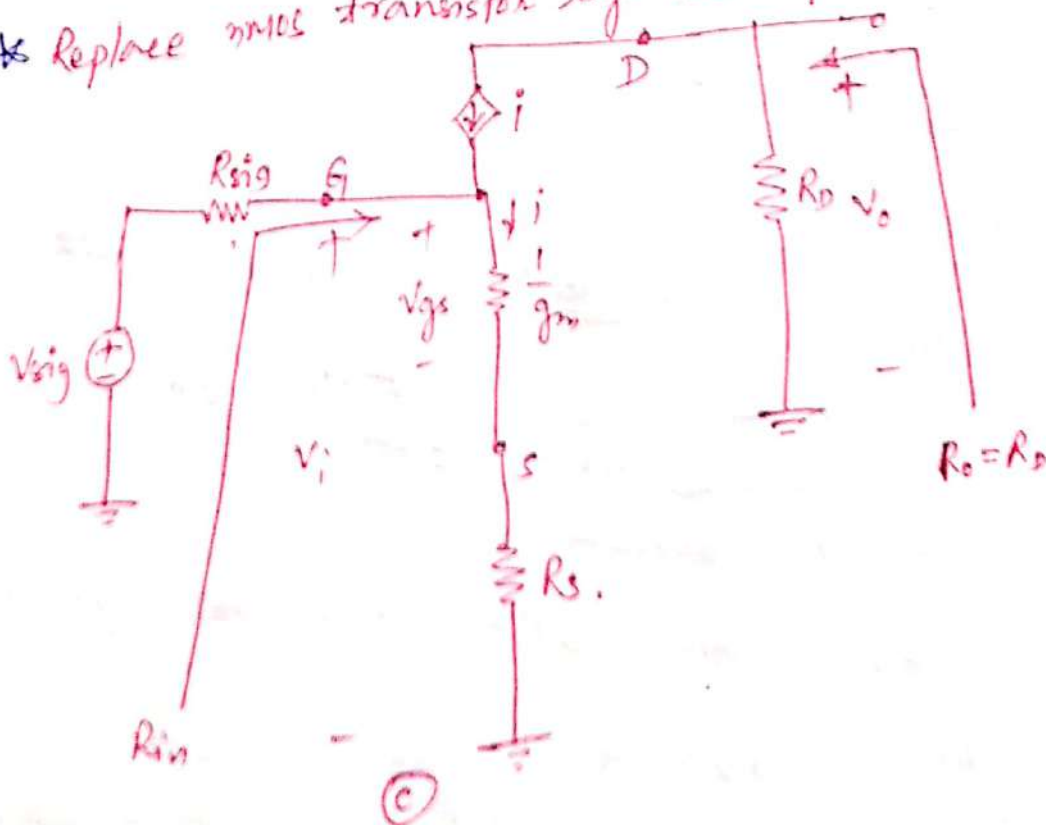 * Replace nMOS transistor
D
i
Rsig
G
i
+
+
+
RD
Vo
Vgs
1/gm
-
-
Vsig
+
-
Vi
S
Ro = RD
Rs.
Rin
-
C